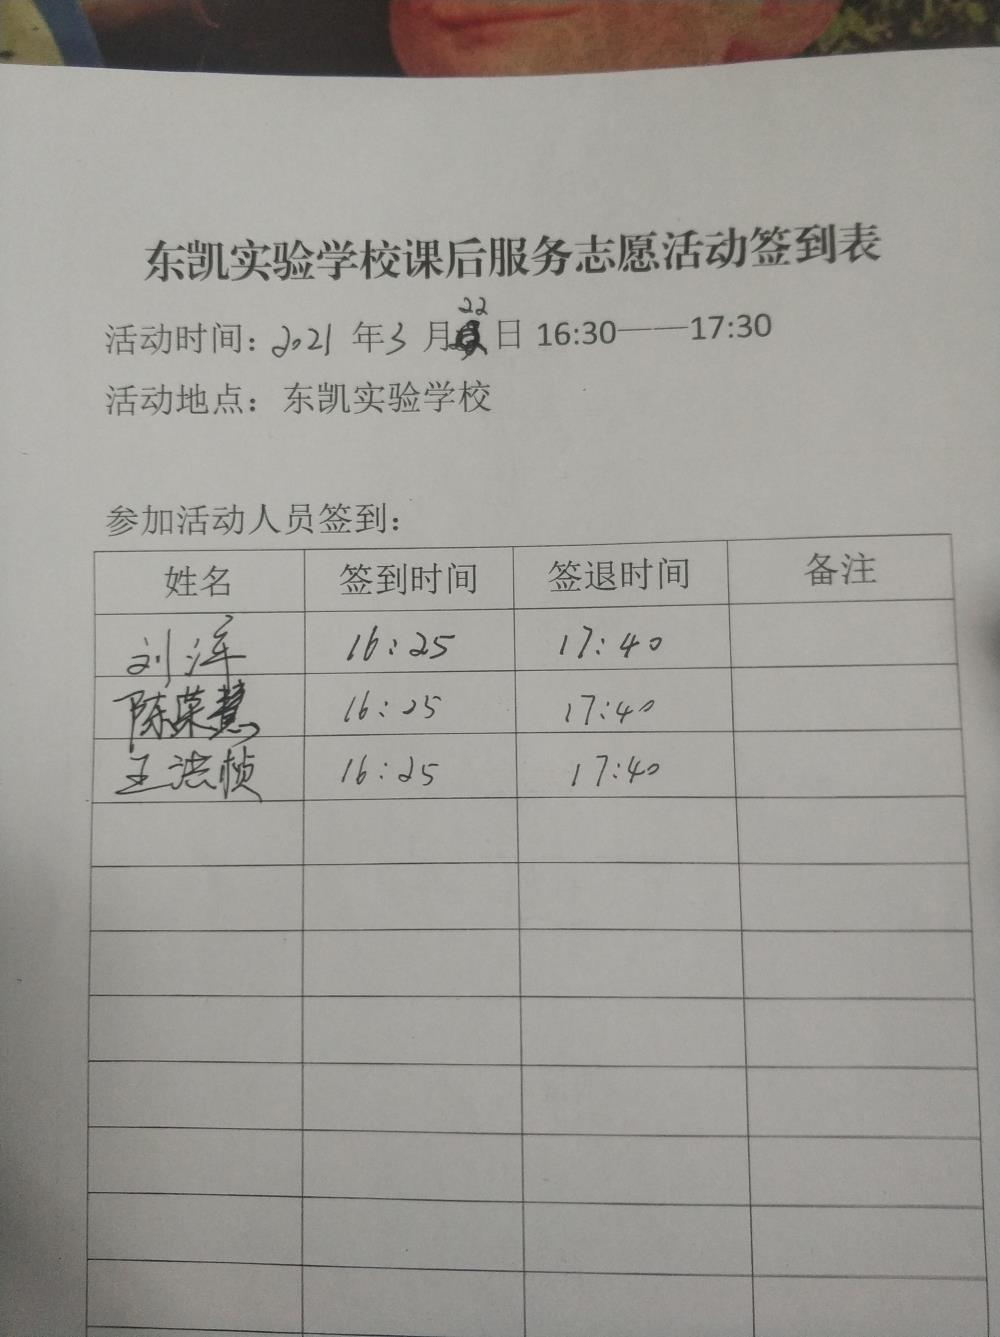 东凯实验学校课后服务志愿活动签到表
活动时间：2021 年 3 月 22 日 16:30——17:30
活动地点：东凯实验学校
参加活动人员签到：
姓名 签到时间 签退时间 备注
刘洋 16:25 17:40
陈荣慧 16:25 17:40
王洪桢 16:25 17:40